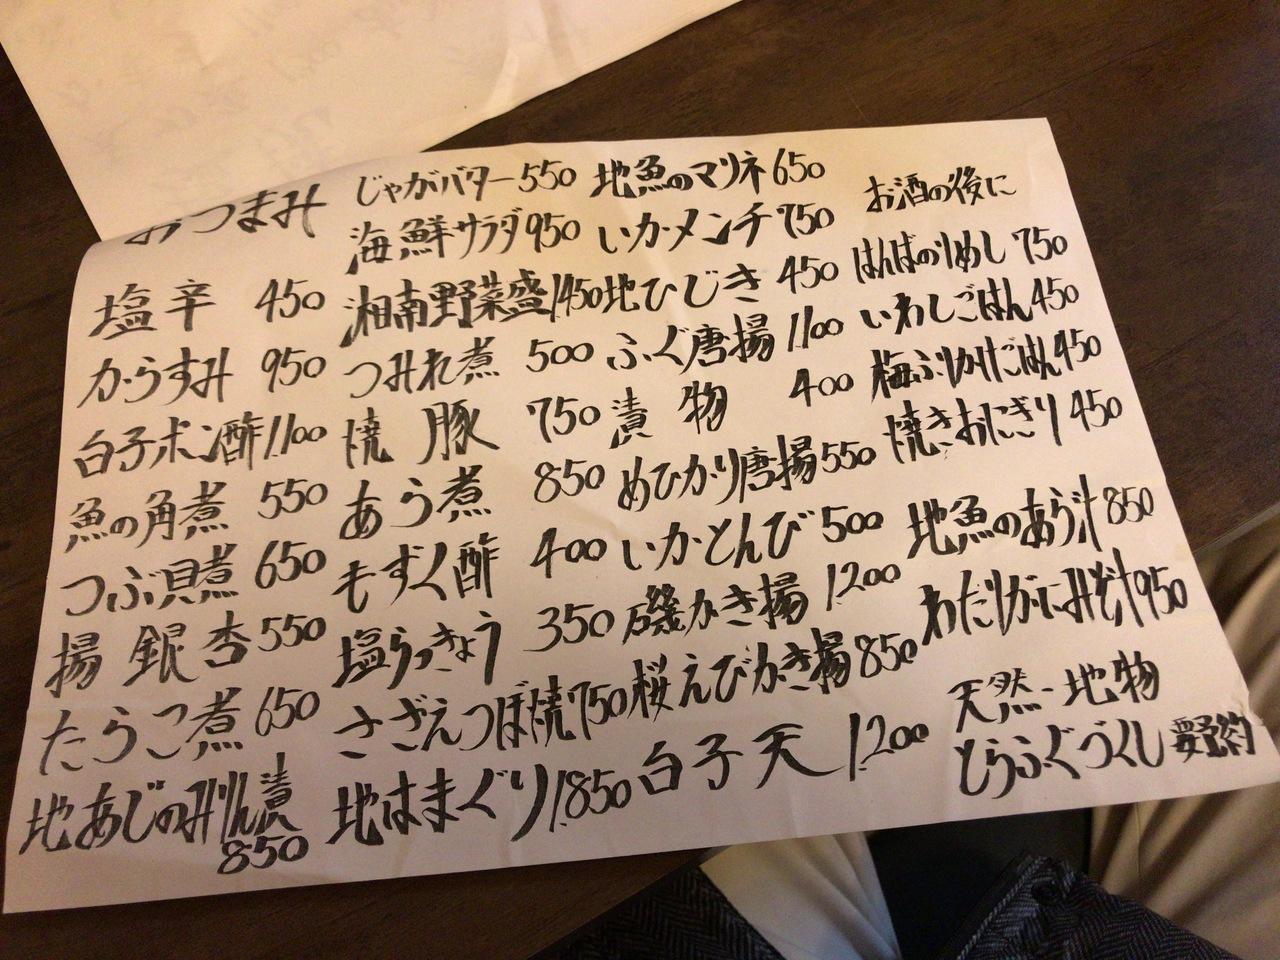 おつまみ
塩辛 450
からすみ 950
白子ポン酢 1,100
魚の角煮 550
つぶ貝煮 650
揚銀杏 550
たらこ煮 650
地あじのみりん漬
850
じゃがバター 550
海鮮サラダ 950
湘南野菜盛 1,450
つみれ煮 500
焼豚 750
あら煮 850
もずく酢 400
塩らっきょう 350
さざえつぼ焼 750
地はまぐり 1,850
地魚のマリネ 650
いか・メンチ 750
地ひじき 450
ふぐ唐揚 1,100
漬物 400
めひかり唐揚 550
いかとんび 500
磯かき揚 1,200
桜えびかき揚 850
白子天 1,200
お酒の後に
はんばのりめし 750
いわしごはん 450
梅ふりかけごはん 450
焼きおにぎり 450
地魚のあら汁 850
わたりがにみそ汁 950
天然・地物
とらふぐづくし 要予約